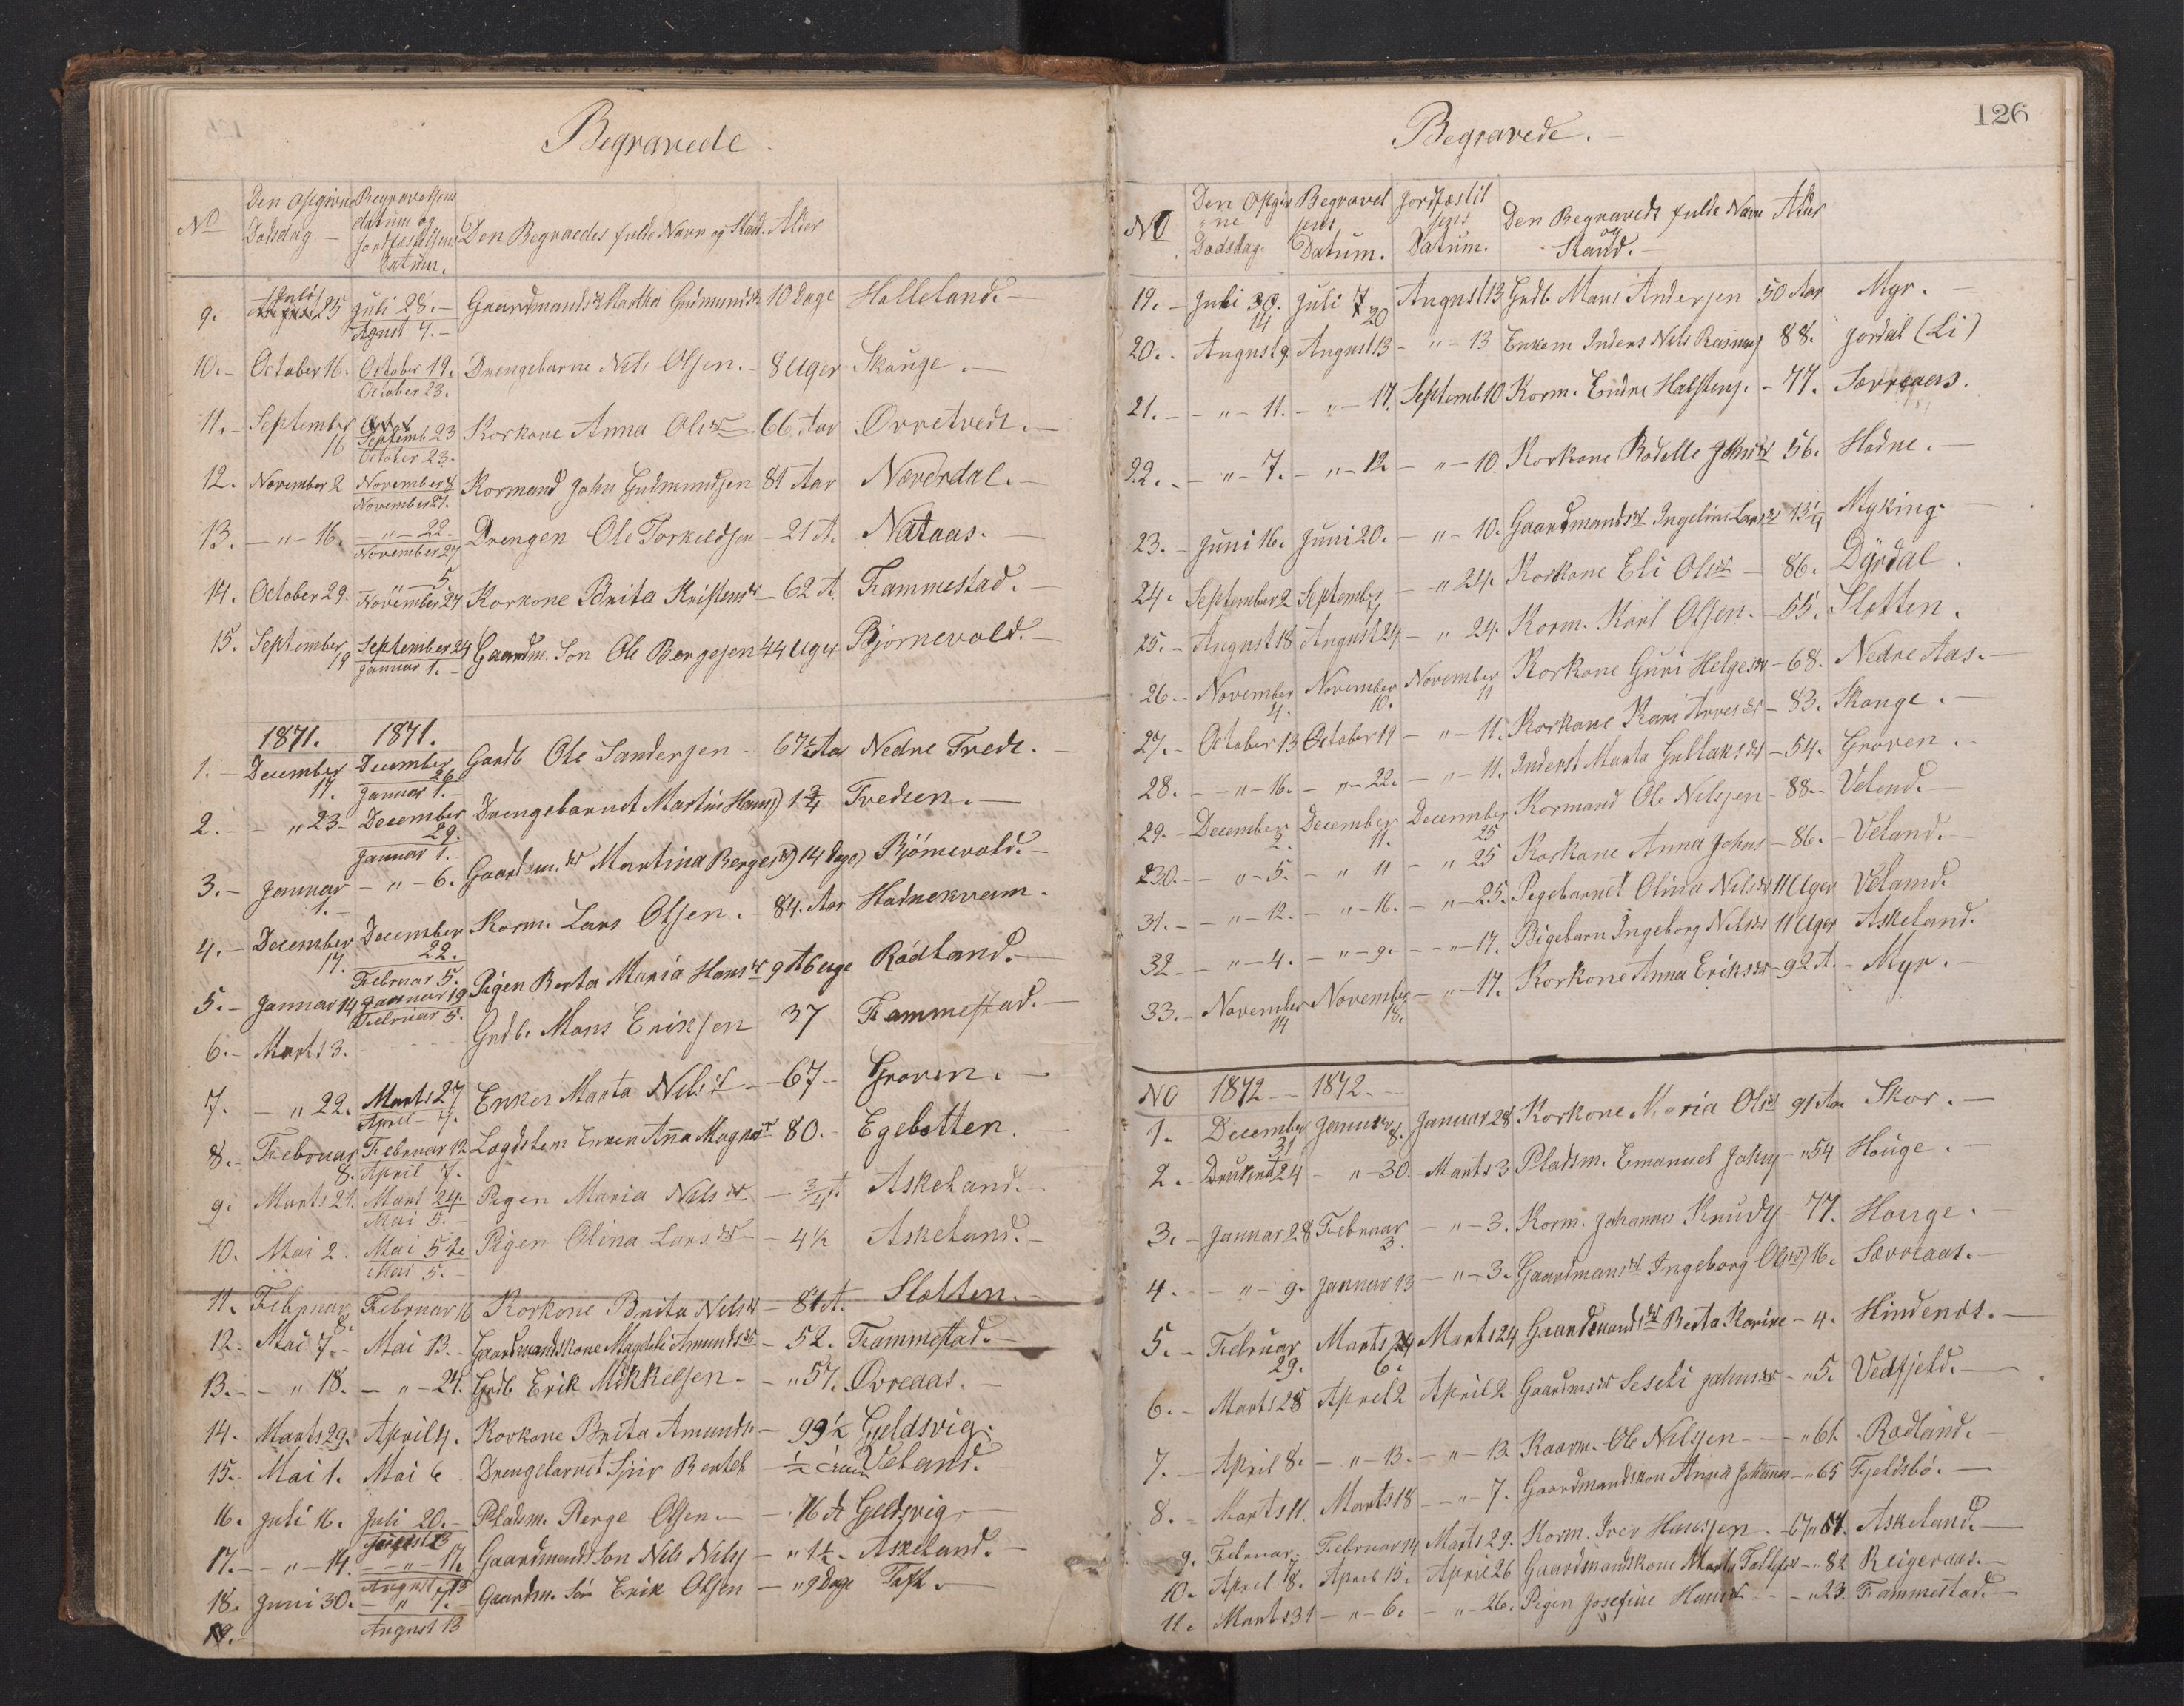 Begravede.
No Den opgivne Dødsdag Begravelsens datum og Jordfæstelsens Datum. Den Begravedes fulde Navn og Stand. Alder
9. Juli 25 Juli 28. Gaardmandsdt Martha Gudmundsdt 10 Dage Helleland.
August 7.
10. October 16. October 19. Drengebarne Nils Olsen. 8 Uger Skauge.
October 23.
11. September 16 Septemb 23 Korkone Anna Olsdt 66 Aar Øvretvedt.
October 23.
12. November 2 November 8 Kormand John Gudmundsen 81 Aar Næverdal.
November 27.
13. " 16. " 22. Drengen Ole Torkeldsen 21 A. Nataas.
November 27
14. October 29. " 5. Korkone Brita Kristensdt 62 A. Frammestad.
November 27
15. September 19 September 24 Gaardm. Son Ole Bergesen 44 Uger Bjørnevold.
Januar 1.
1871. 1871.
1. December 17. December 26. Gaardb Ole Sandersen 67½ Aar Nedre Tvedt.
Januar 1.
2. " 23 December 29. Drengebarnet Martin Hans) 1¾ Tvedten.
Januar 1.
3. Januar 1. " 6. Gaardm. dt Martina Bergesdt) 14 Dage) Bjørnevold.
4. December 17. December 22. Korm. Lars Olsen. 84. Aar Hodnekvam.
Februar 5.
5. Januar 14 Januar 19 Pigen Berta Maria Hansdt 9 A 6 uge Rødland.
Februar 5.
6. Marts 3. Grdb. Mons Eriksen 37 Frammestad.
7. " 22. Marts 27 Enken Marta Nilsdt 67 Groven.
April 7.
8. Februar 8. Februar 12 Lægdslem Enken Anna Magnesdt 80. Egebotten.
April 7.
9. Marts 21. Mart 24. Pigen Maria Nilsdt ¾ A Askeland.
Mai 5.
10. Mai 2. Mai 5te Pigen Olina Larsdt 4½ Askeland.
Mai 5.
11. Februar 8. Februar 16 Korkone Brita Nilsdt 81 A. Sletten.
12. Mai 7. Mai 13. Gaardmandskone Magdeli Amundsdt 52. Frammestad.
13. " 18. " 24. Grdb Erik Mikkelsen " 57. Øvreaas.
14. Marts 29. April 4. Korkone Brita Amunds 99½ Gjeldsvig.
15. Mai 1. Mai 6 Drengebarnet Bertel ½ Veland.
16. Juli 16. Juli 20. Pladsm. Berge Olsen 76 A Gjeldsvig.
August 13
17. " 14. " 17. Gaardmands Son Nils Nilss " 1½. Askeland.
August 13
18. Juni 30. " 7. Gaardm. Søn Erik Olsen " 9 Dage Toft.
19. August 13
126
Begravede.
No Den Opgivne Dødsdag. Begravelsens Datum. Jordfæstelsens Datum. Den Begravede fulde Navn og Stand. Alder
19. Juli 14 Juli 20 August 13 Grdb. Mons Andersen 50 Aar Myr.
20. August 9 August 13 " 13 Enkem Inders Nils Rasmuss 88. Jordal (Li)
21. " 11. " 17. Septemb 10 Korm. Endre Halstens. 77. Sævreaas.
22. " 7. " 12 " 10. Korkone Bodelle Johnsdt 56. Hodne.
23. Juni 16. Juni 20. " 10. Gaardmandsdt Ingeline Larsdt 13¼ Myking.
24. September 2 September 7 " 24. Korkone Eli Olsdt 86. Dyrdal.
25. August 18 August 24 " 24. Korm. Karl Olsen. 55. Sletten.
26. November 4. November 10. November 11 Korkone Guri Helgesdt 68. Nedre Aas.
27. October 13 October 19 " 11. Korkone Kari Arnesdt 83. Skauge.
28. " 16. " 22. " 11. Inderst Marta Gullaksdt 54. Groven.
29. December 2. December 11. December 25 Kormand Ole Nilsen 88. Velend.
30. " 5. " 11 " 25 Korkone Anna Johns 86. Veland.
31. " 12. " 16. " 25. Pigebarnet Olina Nilsdt 11 Uger Veland.
32 " 4. " 9. " 17. Pigebarn Ingeborg Nilsdt 11 Uger Askeland.
33. November 14 November 18. " 17. Korkone Anna Eriksdt 92 A. Myr.
No 1872 1872.
1. December 31 Januar 8. Januar 28 Korkone Maria Olsdt 91 Aar Skor.
2. Druknet 24 " 30. Marts 3 Pladsm. Emanuel Johns " 54 Houge.
3. Januar 28 Februar 3. " 3. Korm. Johannes Knuds 77. Houge.
4. " 9. Januar 13 " 3. Gaardmansdt Ingeborg Olsdt) 16. Sævreaas.
5. Februar 29. Marts 6. Marts 24 Gaardmandsdt Berta Karine 4. Hindenes.
6. Marts 28 April 2 April 2 Gaardmsdt Seseli Johnsdt " 5. Vedfjeld.
7. April 8. " 13. " 13. Kaarm. Ole Nilsen " 61. Rødland.
8. Marts 11 Marts 18 " 7. Gaardmandskon Anna Johannes " 65 Fjeldsbø.
9. Februar Februar 14 Marts 29. Korm. Iver Hansen. 67 Askeland.
10. April 8. April 15. April 26 Gaardmandskone Marta Tollefsdt " 82 Reigeraas.
11. Marts 31 " 6. " 26. Pigen Josefine Hansdt " 23. Frammestad.